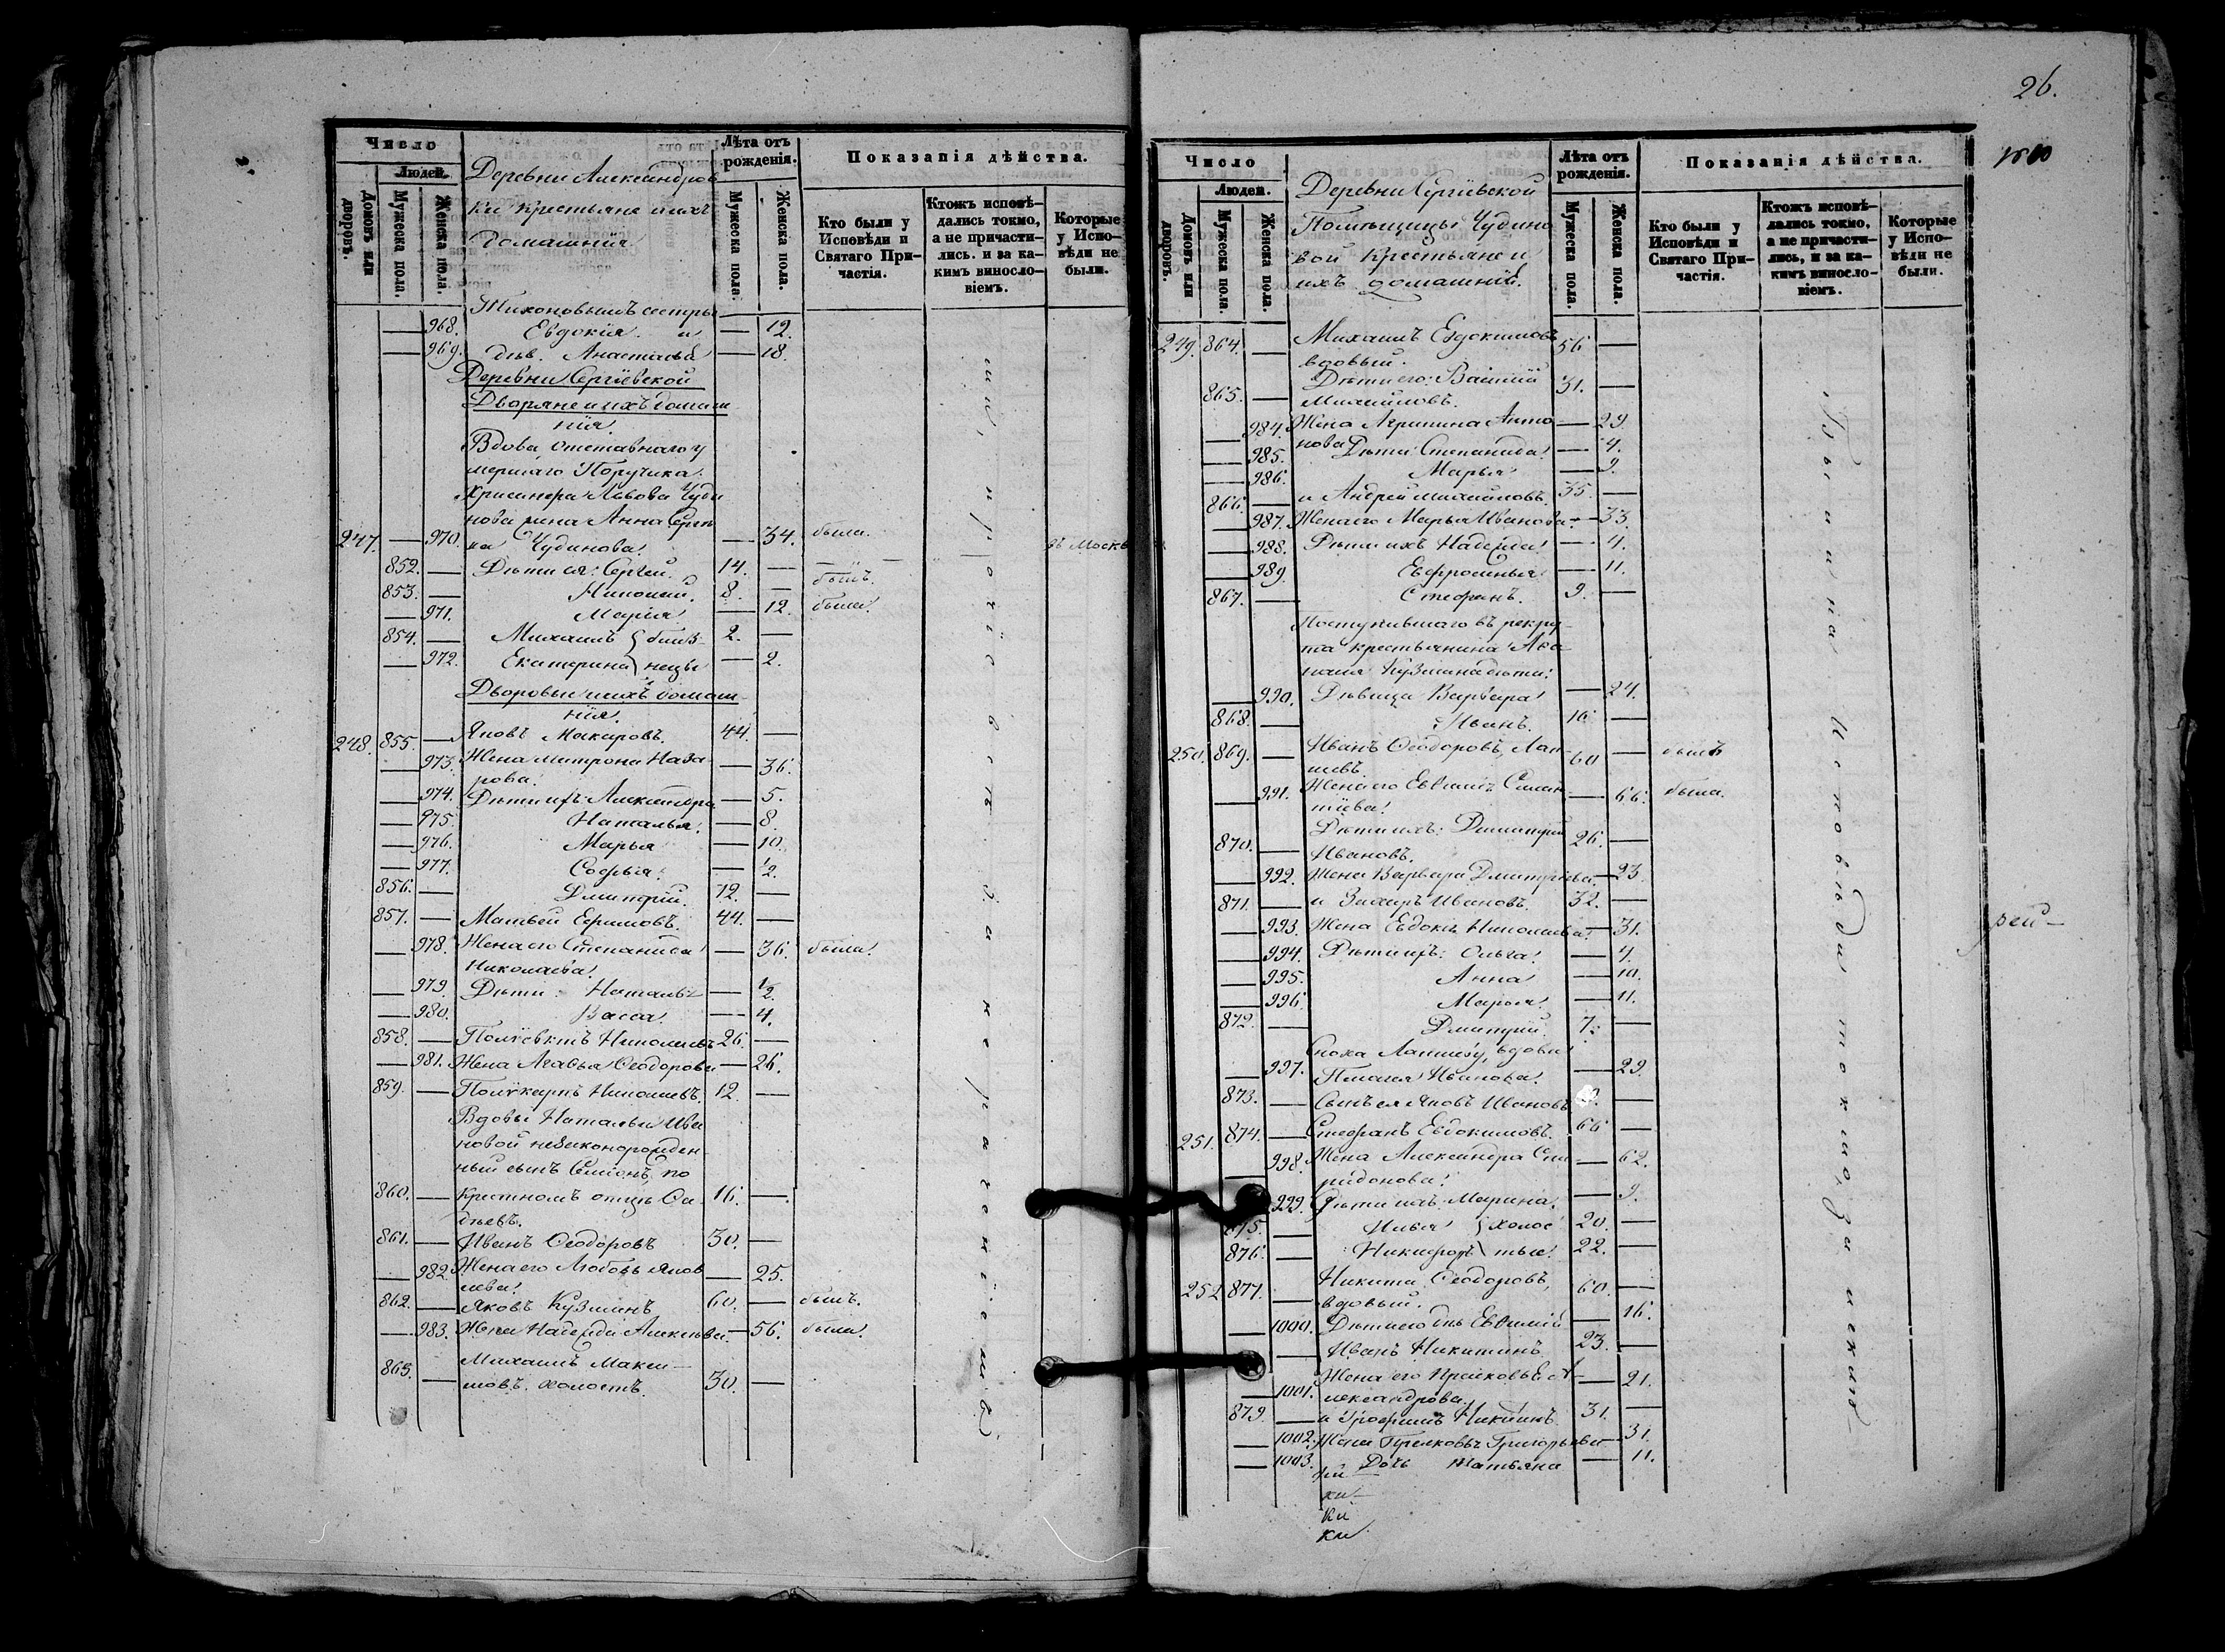 Число
Людей.
Домовъ или дворовъ.
Мужеска пола.
Женска пола.
Деревни Александров
ки крестьяне и ихъ
домашнія
Лѣта отъ рожденія.
Мужеска пола.
Женска пола.
Показанія дѣйства.
Кто были у Исповѣди и Святаго Причастія.
Ктожъ исповѣ-
дались токмо,
а не причасти-
лись. и за ка-
кимъ винословіемъ.
Которые у Испо-
вѣди не были.
Тихоновымъ сестры
968. Евдокія и — 12.
969. дѣв. Анастасья — 18.
Деревни Сергіевской
Дворяне и ихъ домаш
нія.
Вдова отставнаго у
мершаго Поручика
Хрисанфа Львова Чуди
нова жена Анна Сергѣ
247. — 970. ва Чудинова. — 34. была.
въ Москв
852. — Дѣти ея: Сергей. 14. —
853. — Николай. 8. — былъ.
— 971. Марія — 12. была.
854. — Михаилъ } близ 2. —
— 972. Екатерина } нецы — 2.
Дворовые и ихъ домаш
нія.
248. 855. — Яковъ Макаровъ. 44. —
— 973. Жена Матрона Наза — 36.
рова.
— 974. Дѣти ихъ: Александра — 5.
— 975. Наталья. — 8.
— 976. Марья — 10.
— 977. Софья. — ½.
856. — Дмитрій. 12. —
857. — Матвей Ефимовъ. 44. —
— 978. Жена его Степанида — 36. была.
Николаева.
— 979. Дѣти: Наталья — ½.
— 980. Васса. — 4.
858. — Поліевктъ Николаевъ 26. —
— 981. Жена Агафья Ѳеодорова — 26.
859. — Поликарпъ Николаевъ. 12. —
Вдовы Натальи Ива
новой незаконорожден-
ный сынъ Симіонъ, по
860. — крестномъ отцѣ Са 16. —
861. — Иванъ Ѳеодоровъ 30. —
— 982. Жена его Любовь Яков — 25.
лева.
862. — Яковъ Кузминъ 60. — былъ.
— 983. Жена Надежда Алексѣева — 56. была.
863. — Михаилъ Макси-
мовъ. холостъ. 30. —
26.
Число
Людей.
Домовъ или дворовъ.
Мужеска пола.
Женска пола.
Деревни Сергіевской
Помѣщицы Чудино
вой Крестьяне и
ихъ домашній.
Лѣта отъ рожденія.
Мужеска пола.
Женска пола.
Показанія дѣйства.
Кто были у Исповѣди и Святаго Причастія.
Ктожъ исповѣ-
дались токмо,
а не причасти-
лись, и за ка-
кимъ винословіемъ.
Которые у Испо-
вѣди не были.
249. 864. — Михаилъ Евдокимовъ 56 —
вдовый.
865. — Дѣти его: Василій 31. —
Михайловъ.
— 984. Жена Агрипина Анто — 29.
— 985. нова Дѣти: Степанида — 4.
— 986. Марья — 9.
866. — и Андрей Михайловъ. 35. —
— 987. Жена его Марья Иванова. — 33.
— 988. Дѣти ихъ Надежда — 4.
— 989. Евфросинья — 11.
867. — Стефанъ. 9. —
Поступившаго въ рекру-
та крестьянина Афа
насія Кузмина дѣти:
— 990. Дѣвица Варвара — 24.
868. — Иванъ. 16. —
250. 869. — Иванъ Ѳеодоровъ, Лап- 60 — былъ
шевъ.
— 991. Жена его Евѳимія Силан- — 66. была.
тіева.
870. — Дѣти ихъ: Димитрій 26. —
Ивановъ.
— 992. Жена Варвара Дмитріева — 23.
871. — и Захаръ Ивановъ. 32. —
— 993. Жена Евдокія Николаева. — 31.
— 994. Дѣти ихъ: Ольга. — 4.
— 995. Анна — 10.
— 996. Марья. — 11.
872. — Дмитрій. 7. —
Сноха Лапшеву, вдова
— 997. Пелагея Иванова. — 29.
873. — Сынъ ея Яковъ Ивановъ —
251. 874. — Стефанъ Евдокимовъ. 66 —
— 998. Жена Александра Спи — 62.
ридонова.
— 999. Дѣти ихъ: Марина — 9.
875. — Илья } холос 20. —
876. — Никифоръ } тые. 22. —
252. 877. — Никита Ѳеодоровъ, 60. —
вдовый.
— 1000. Дѣти его дѣв Евѳимія — 16.
— Иванъ Никитинъ 23. —
Жена его Прасковья А- — 21.
— 1001. лександрова.
879. — и Трофимъ Никитинъ 31. —
— 1002. Жена Прасковья Григорьева — 31.
— 1003. Дочь Татьяна — 11.
Были на Исповѣди токмо, за